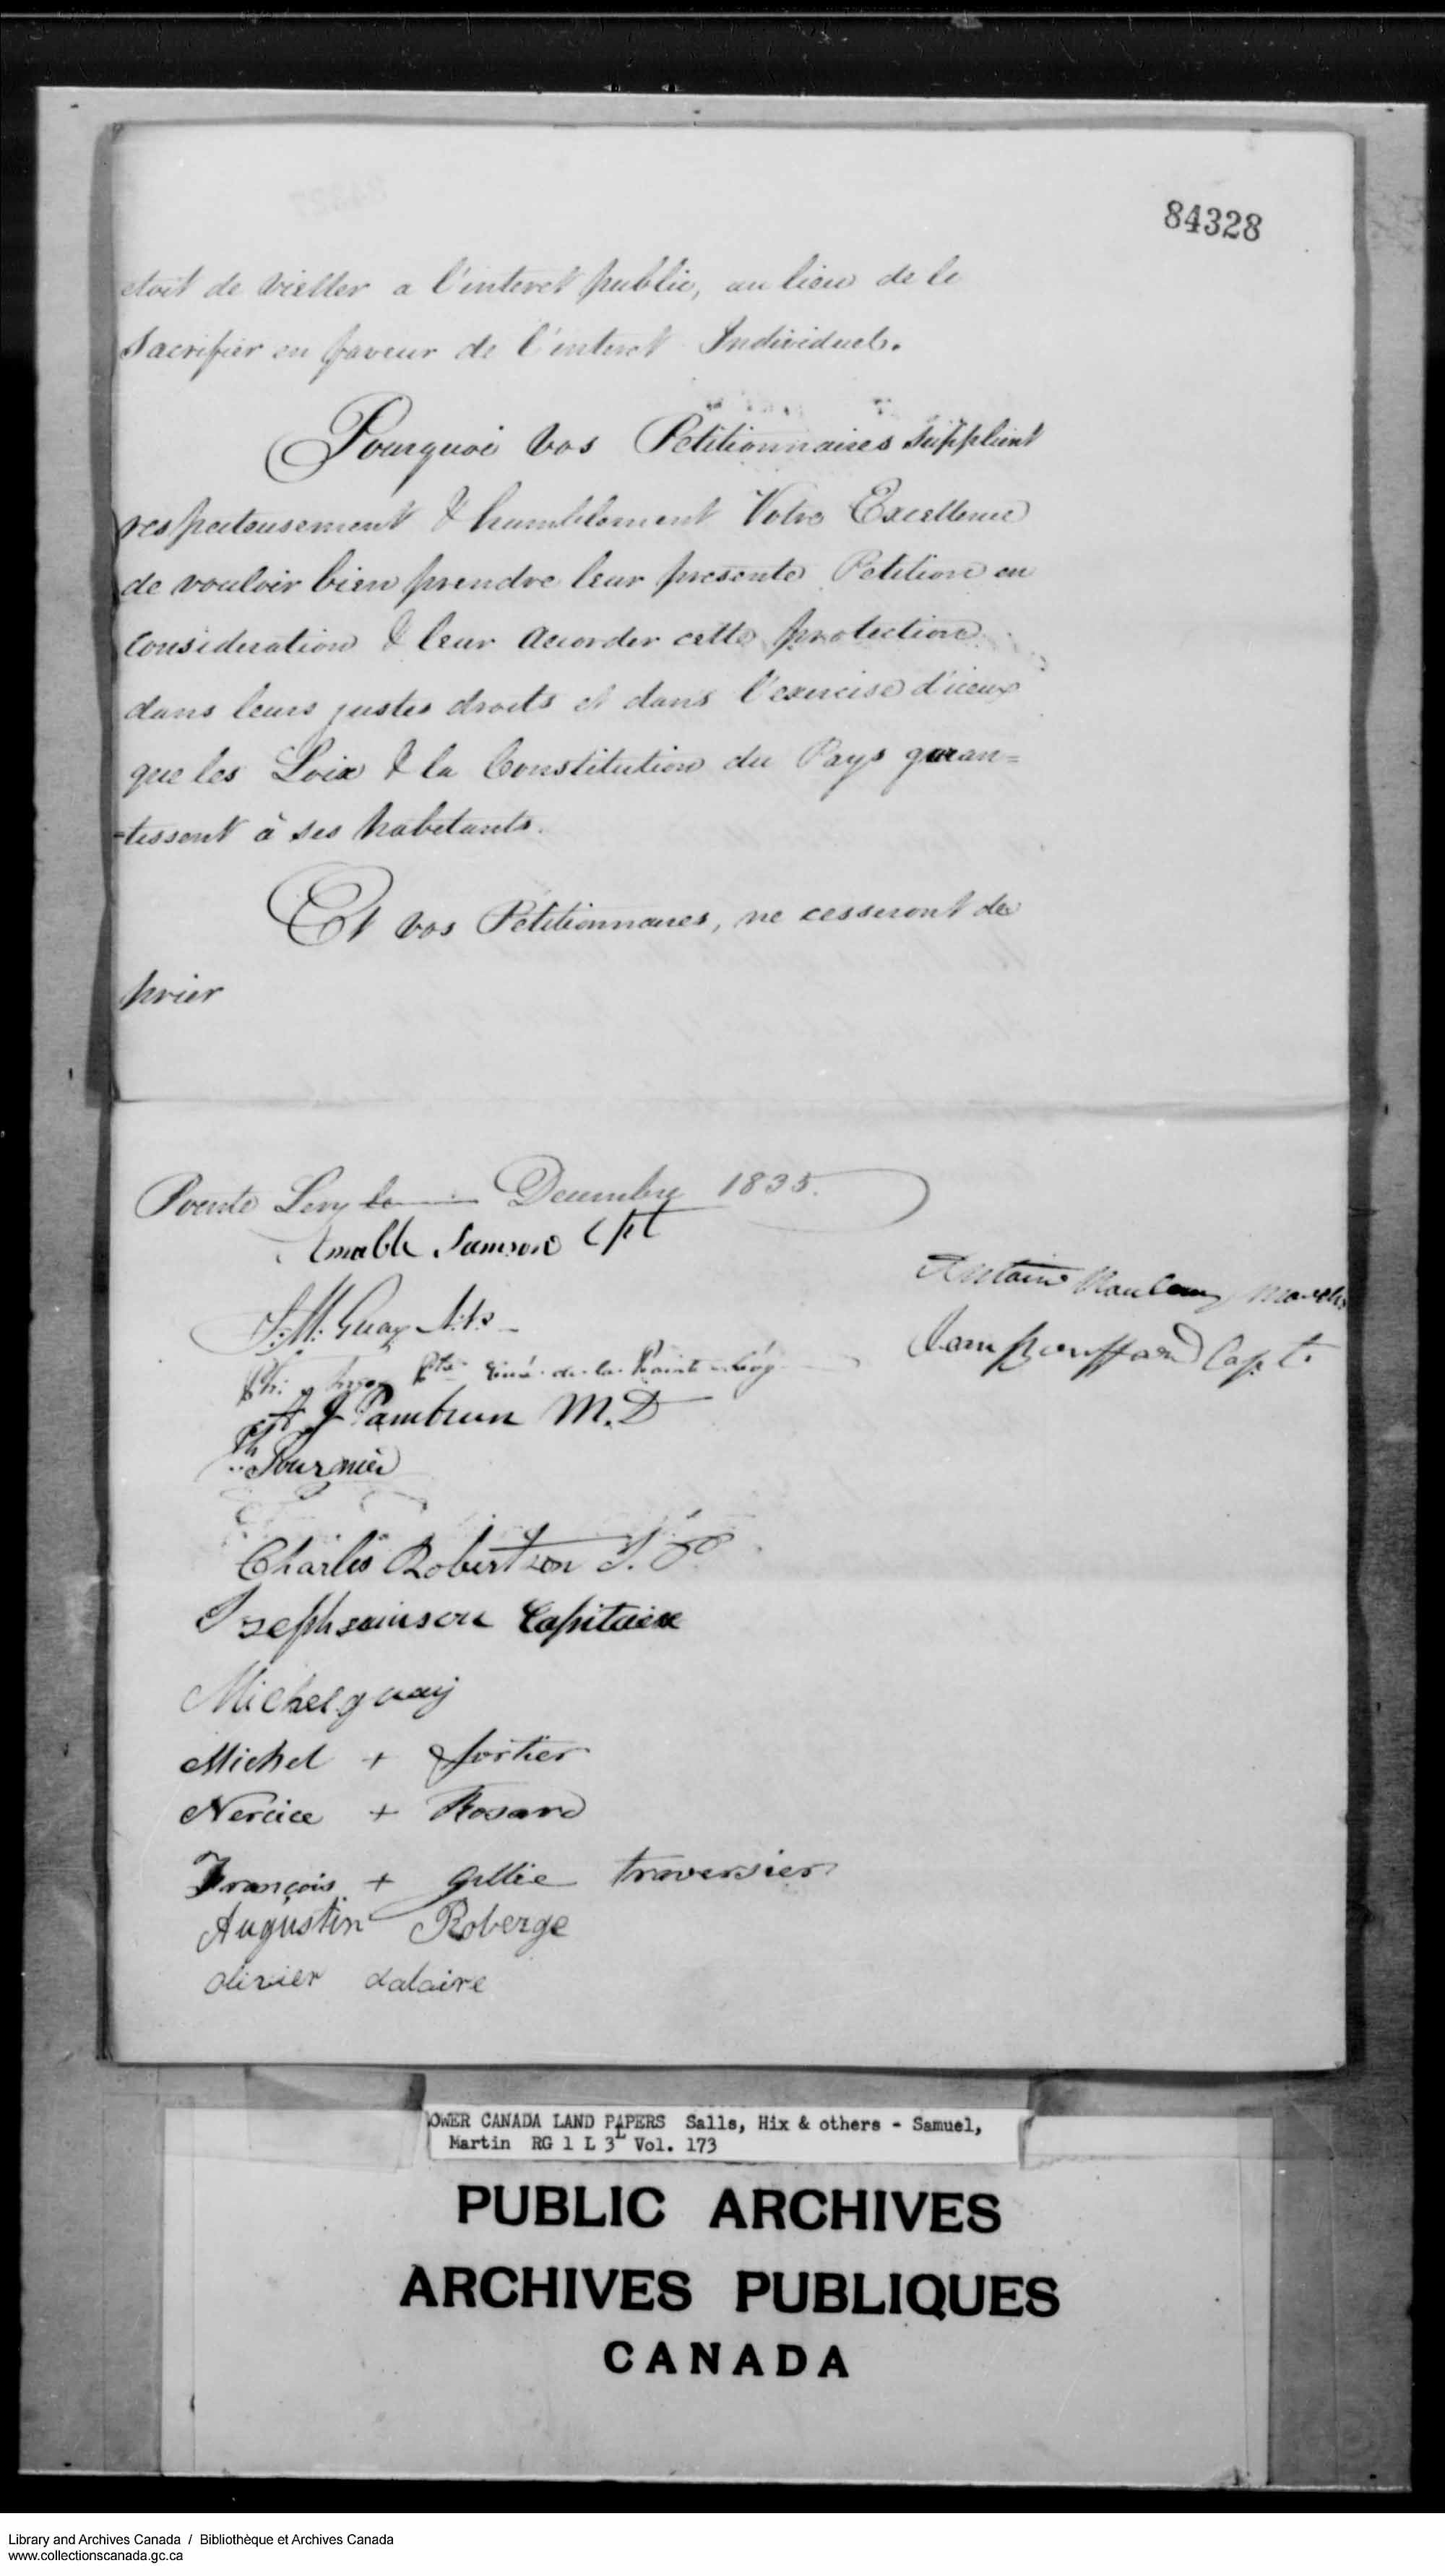 84328
etoit de vieller a l'interet public, au lieu de le
sacrifier en faveur de l'interet Individuel.
Pourquoi vos Petitionnaires supplient
respecteusement & humblement Votre Excellence
de vouloir bien prendre leur presente Petition en
consideration & leur accorder cette protection
dans leurs justes droits et dans l'exercise d'iceux
que les Loix & la Constitution du Pays garan=
=tissent à ses habitants.
Et vos Petitionnaires, ne cesseront de
prier
Pointe Levy le Decembre 1835.
Amable Samson Cpt
Antoine
J. M. Guay
Capt.
Ptre Curé de la Pointe Lévy
J Pambrun M.D
Fournier
Charles Robertson J. P
Joseph samson Capitaine
Michel guay
Michel + fortier
Nercice + Rosard
François + gellie traversier
Augustin Roberge
olivier dalaire
LOWER CANADA LAND PAPERS Salls, Hix & others - Samuel,
Martin RG 1 L 3L Vol. 173
PUBLIC ARCHIVES
ARCHIVES PUBLIQUES
CANADA
Library and Archives Canada / Bibliothèque et Archives Canada
www.collectionscanada.gc.ca